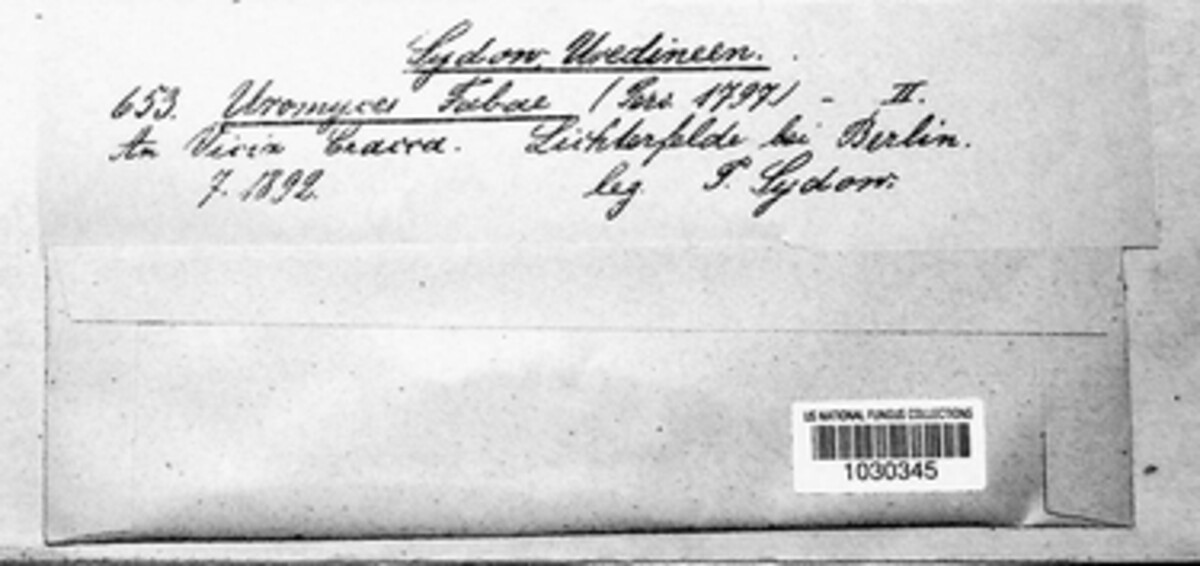 Sydow, Uredineen.
653. Uromyces Fabae (Pers. 1797) - II.
An Vicia Cracca. Lichterfelde bei Berlin.
7. 1892. leg. P. Sydow.
US NATIONAL FUNGUS COLLECTIONS
1030345